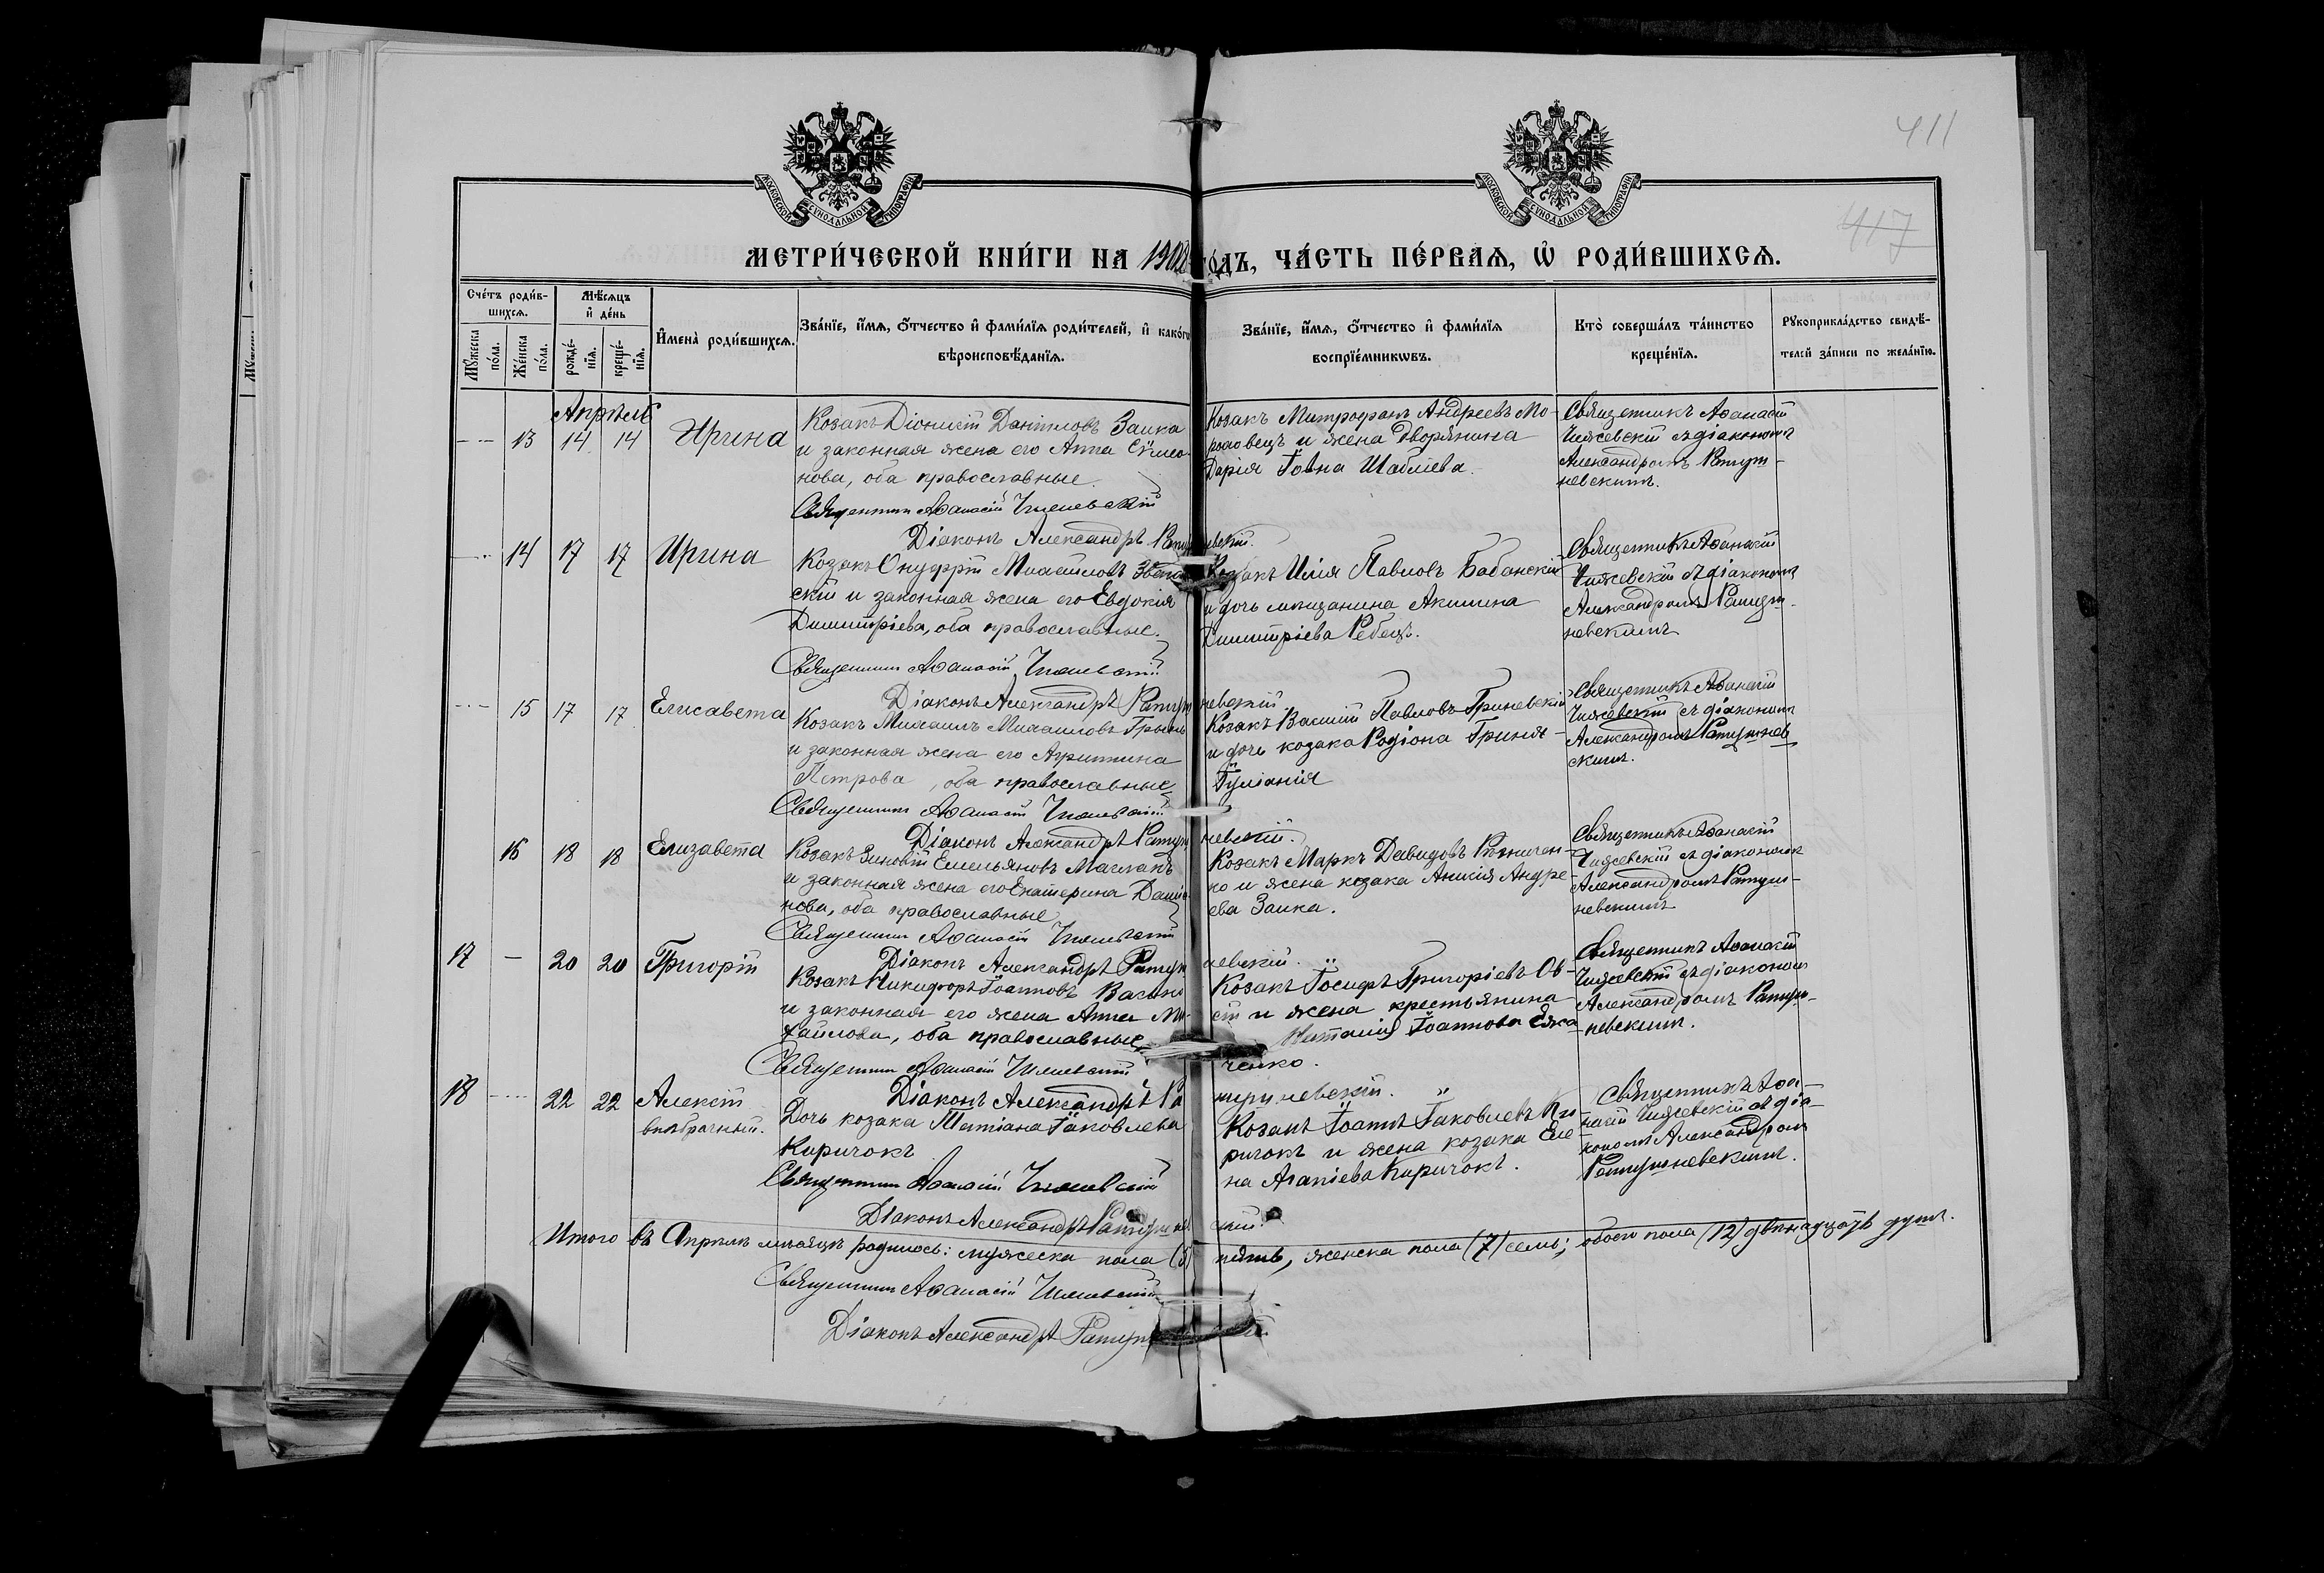 411
417
МОСКОВСКОЙ СѴНОДАЛЬНОЙ ТИПОГРАФІИ
МОСКОВСКОЙ СѴНОДАЛЬНОЙ ТИПОГРАФІИ
МЕТРИ́ЧЕСКОЙ КНИ́ГИ НА 1902 го́дъ, ЧА́СТЬ ПЕ́РВАѦ, Ѡ҆ РОДИ́ВШИХСѦ.
Сче́тъ роди́в-
шихсѧ.
Мꙋ́жеска по́ла.
Же́нска по́ла.
Мѣ́сѧцъ
и҆ де́нь
рожде́-
нїѧ.
креще́-
нїѧ.
И҆мена̀ роди́вшихсѧ.
Зва́нїе, и҆́мѧ, ѻ҆́тчество и҆ фами́лїѧ роди́телей, и҆ како́гѡ
вѣроисповѣ́данїѧ.
Зва́нїе, и҆́мѧ, ѻ҆́тчество и҆ фами́лїѧ
воспрїе́мникѡвъ.
Кто̀ соверша́лъ та́инство
креще́нїѧ.
Рꙋкоприкла́дство свидѣ́-
телей за́писи по жела́нїю.
Апрѣль
13 14 14 Ирина
Козакъ Діонисій Даніиловъ Заика
и законная жена его Анна Сѵмео-
нова, оба православные.
Священникъ Аѳанасій Чижевскій
Діаконъ Александръ Ратушневскій.
Козакъ Митрофанъ Андреевъ Мо-
роховецъ и жена дворянина
Дарія Шаблієва.
Священникъ Аѳанасій
Чижевскій съ діакономъ
Александромъ Ратуш-
невскимъ.
14 17 17 Ирина
Козакъ Онуфрій Михаиловъ
скій и законная жена его Евдокія
Димитріева, оба православные.
Священникъ Аѳанасій Чижевскій
Діаконъ Александръ Ратушневскій.
Козакъ Илія Павловъ Бабанскій
и дочь мѣщанина Акилина
Димитріева Ребецъ.
Священникъ Аѳанасій
Чижевскій съ діакономъ
Александромъ Ратуш-
невскимъ
15 17 17 Елисавета
Козакъ Михаилъ Михаиловъ
и законная жена его Агриппина
Петрова, оба православные
Священникъ Аѳанасій Чижевскій
Діаконъ Александръ Ратушневскій.
Козакъ Василій Павловъ Гриневскій
и дочь козака Родіона Гриня-
Іуліанія
Священникъ Аѳанасій
Чижевскій съ діакономъ
Александромъ Ратушнев-
скимъ.
16 18 18 Елизавета
Козакъ Зиновій Емельяновъ Маслакъ
и законная жена его Екатерина
нова, оба православные
Священникъ Аѳанасій Чижевскій
Діаконъ Александръ Ратушневскій.
Козакъ Маркъ Давидовъ
ко и жена козака Анисія Андре-
ева Заика.
Священникъ Аѳанасій
Чижевскій съ діакономъ
Александромъ Ратуш-
невскимъ
17 — 20 20 Григорій
Козакъ Никифоръ Іоанновъ
и законная его жена Анна Ми-
хаилова, оба православные
Священникъ Аѳанасій Чижевскій
Діаконъ Александръ Ратушневскій.
Козакъ Іосифъ Григоріевъ
и жена крестьянина
Наталія Іоаннова
ченко.
Священникъ Аѳанасій
Чижевскій съ діакономъ
Александромъ Ратуш-
невскимъ.
18 22 22 Алексій
внѣбрачный.
Дочь козака Татіана Іаковлева
Киричокъ
Священникъ Аѳанасій Чижевскій
Діаконъ Александръ Ратушневскій.
Козакъ Іоаннъ Іаковлевъ Ки-
ричокъ и жена козака Еле-
на Агапіева Киричокъ.
Священникъ Аѳа-
насій Чижевскій съ діа-
кономъ Александромъ
Ратушневскимъ.
Итого въ Апрѣлѣ мѣсяцѣ родилось: мужеска пола (5) пять, женска пола (7) семь; обоего пола (12) двѣнадцать душъ.
Священникъ Аѳанасій Чижевскій
Діаконъ Александръ